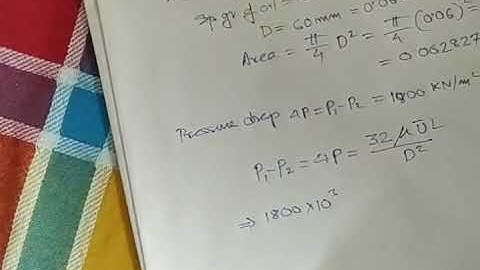 Sp gr of oil =
D = 60mm = 0.06
Area = π/4 D² = π/4 (0.06)²
= 0.002827
Pressure drop ΔP = P₁-P₂ = 1800 KN/m²
P₁-P₂ = ΔP = 32 μ Ū L / D²
⇒ 1800 × 10³